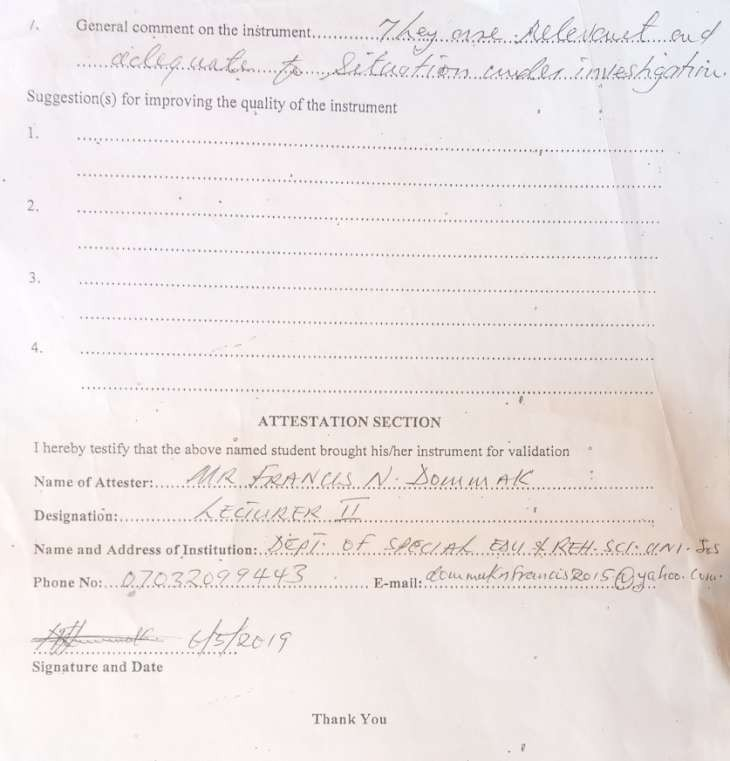 1. General comment on the instrument............They are Relevant and
......adequate to Situation under investigation.
Suggestion(s) for improving the quality of the instrument
1. ....................
....................
2. ....................
....................
3. ....................
....................
4. ....................
....................
ATTESTATION SECTION
I hereby testify that the above named student brought his/her instrument for validation
Name of Attester:.....MR FRANCIS N. DOMMAK
Designation:............LECTURER II
Name and Address of Institution:..DEPT. OF SPECIAL EDU & REH. SCI. UNI. Jos
Phone No:...07032099443............ E-mail: dommaknfrancis2015@yahoo.com.
6/5/2019
Signature and Date
Thank You